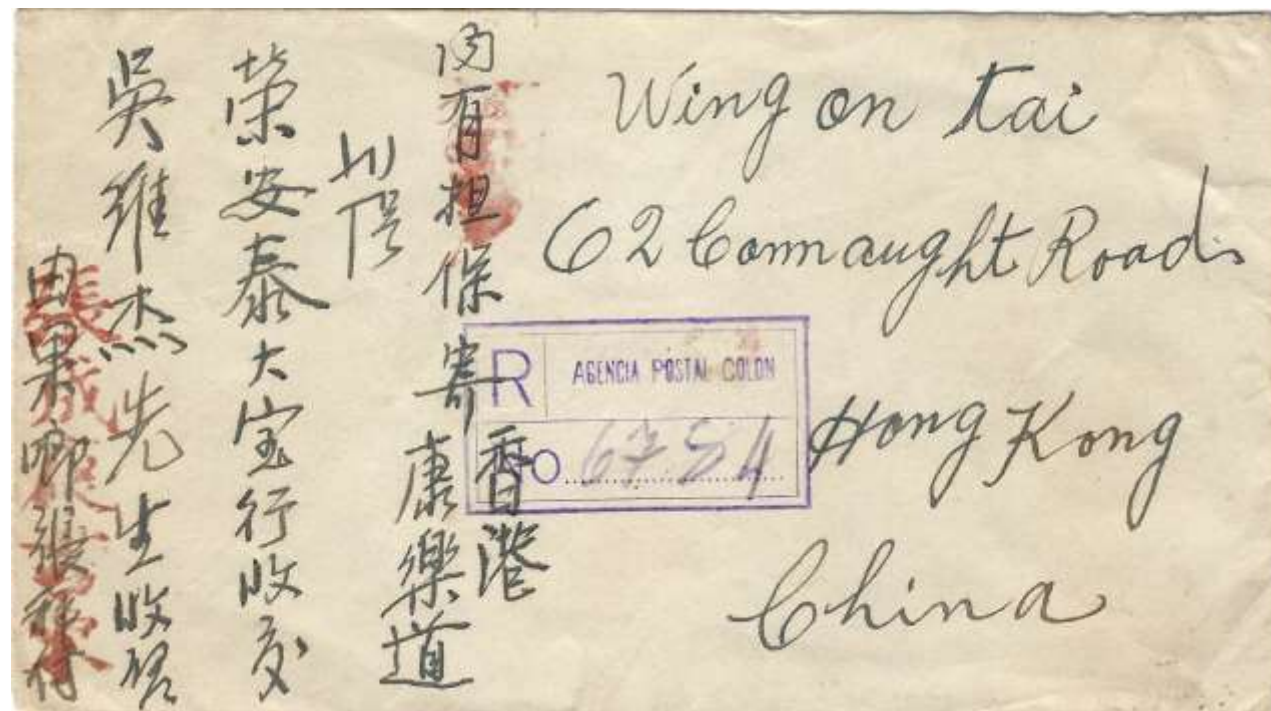 Wing on tai
62 Connaught Road
Hong Kong
China
R AGENCIA POSTAL COLON
No 6754
內有担保寄
香港
康樂道
荣安泰大宝行收交
吳維杰先生收啓